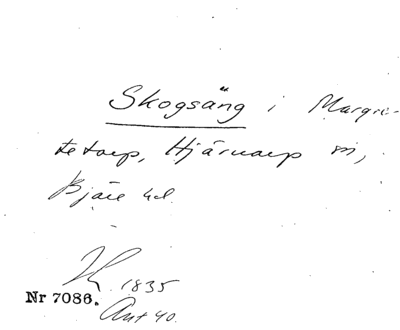 Skogsäng i Margre-
tetorp, Hjärnarp sn,
Bjäre hd.
1835
Nr 7086.
Ant 40.